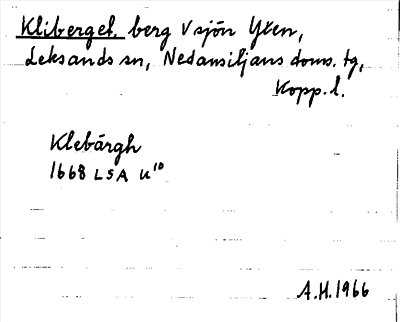 Kliberget, berg V sjön Yten,
Leksands sn, Nedansiljans doms. tg,
Kopp. l.
Klebärgh
1668 LSA U¹⁰
A.H. 1966